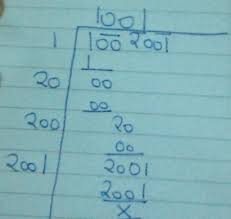 1001
1 1002001
1
20 00
00
200 20
00
2001 2001
2001
x